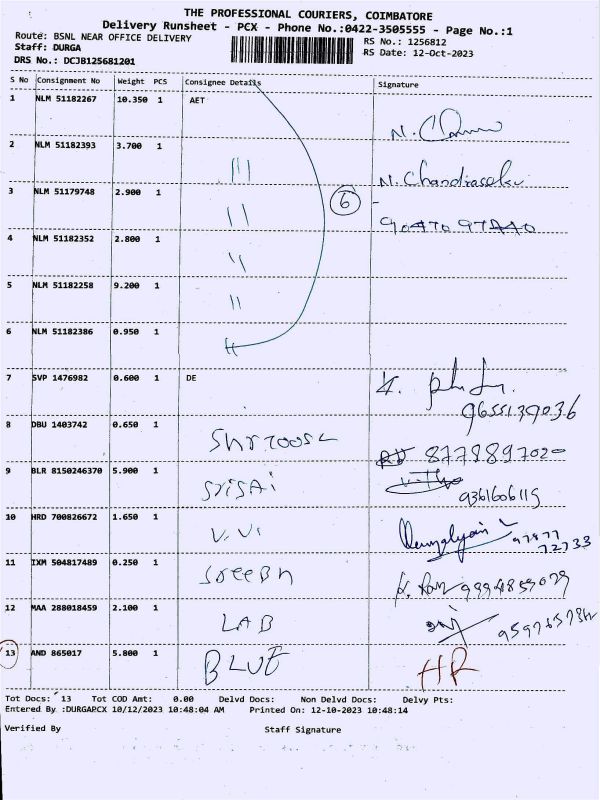 THE PROFESSIONAL COURIERS, COIMBATORE
Delivery Runsheet - PCX - Phone No.:0422-3505555 - Page No.:1
Route: BSNL NEAR OFFICE DELIVERY
RS No.: 1256812
Staff: DURGA
RS Date: 12-Oct-2023
DRS No.: DCJB125681201
S No Consignment No Weight PCS Consignee Details Signature
1 NLM 51182267 10.350 1 AET
2 NLM 51182393 3.700 1
N. Chandrasekar
3 NLM 51179748 2.900 1 6
4 NLM 51182352 2.800 1
5 NLM 51182258 9.200 1
6 NLM 51182386 0.950 1
7 SVP 1476982 0.600 1 DE
9655139036
8 DBU 1403742 0.650 1
8778897020
9 BLR 8150246370 5.900 1 SriSAi
9361606115
10 HRD 700826672 1.650 1 V.V.
97877
72733
11 IXM 504817489 0.250 1
12 MAA 288018459 2.100 1 LAB
13 AND 865017 5.800 1 BLUE HR
Tot Docs: 13 Tot COD Amt: 0.00 Delvd Docs: Non Delvd Docs: Delvy Pts:
Entered By :DURGAPCX 10/12/2023 10:48:04 AM Printed On: 12-10-2023 10:48:14
Verified By Staff Signature